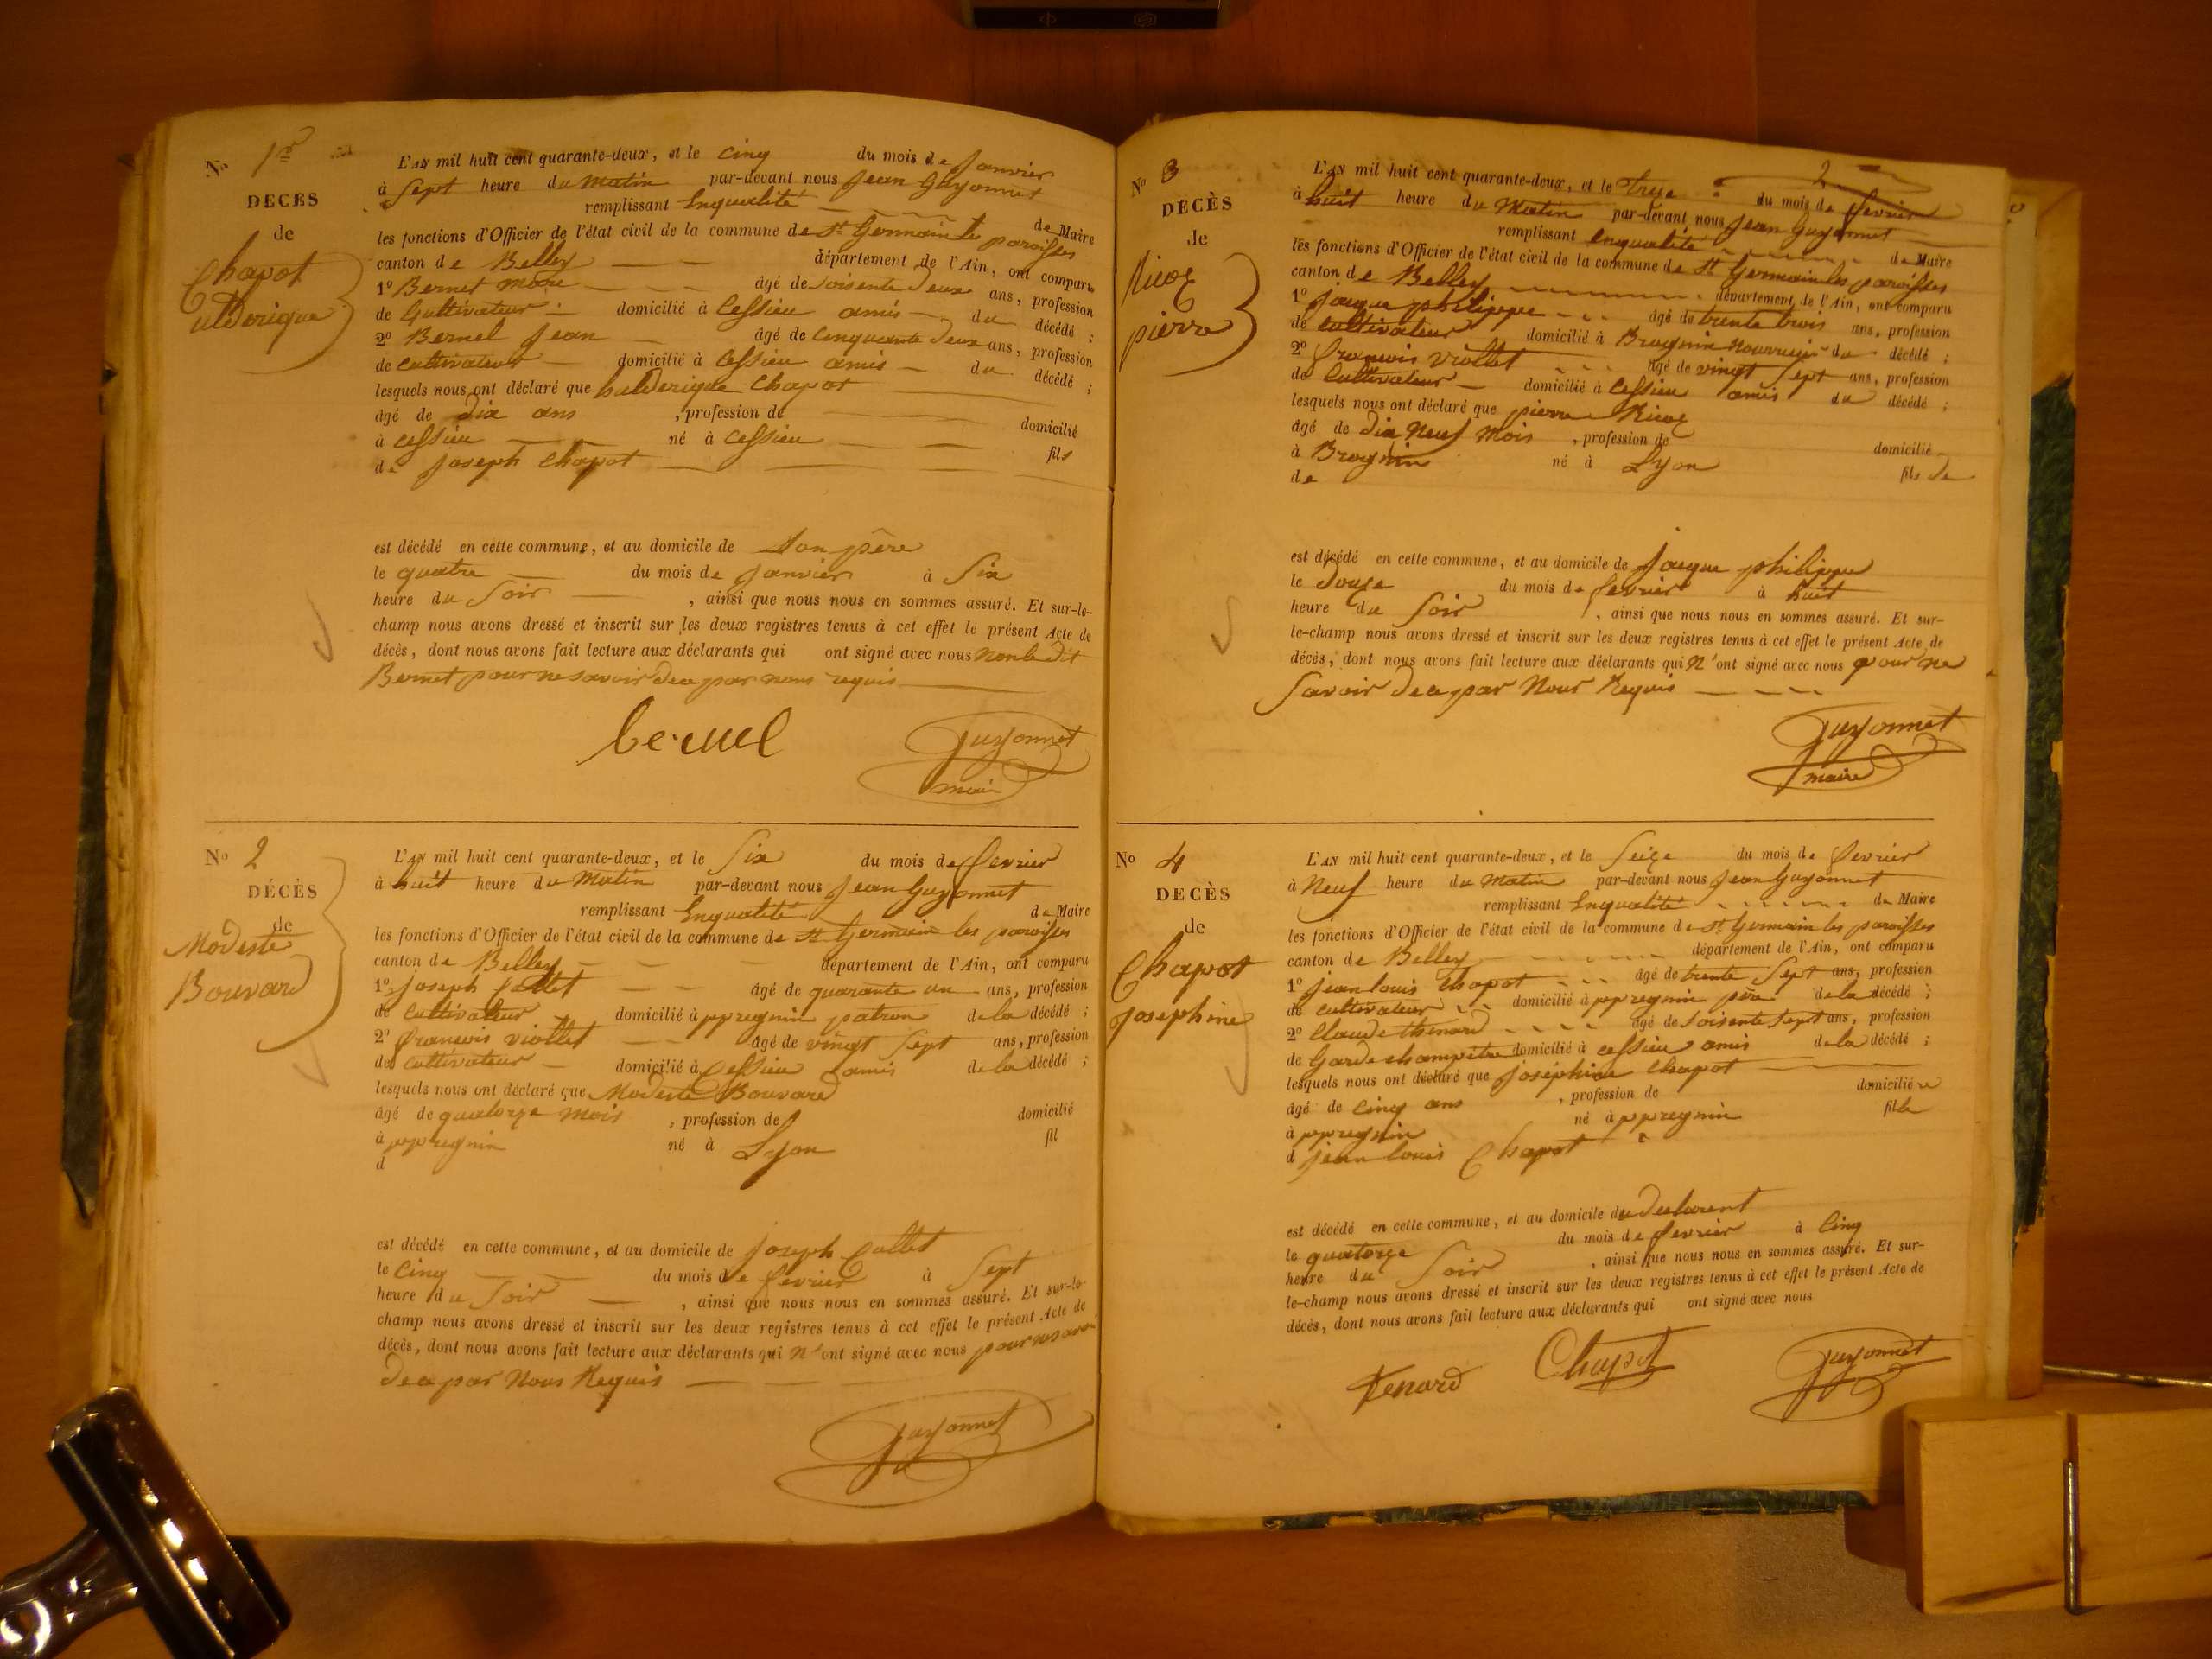 N.o 1er
DECES
de
Chapot
ulderique
L'AN mil huit cent quarante-deux, et le cinq du mois de Janvier
à Sept heure du Matin par-devant nous Jean Guyonnet
remplissant Enqualité de Maire
les fonctions d'Officier de l'état civil de la commune de St Germain les paroisses
canton de Belley département de l'Ain, ont comparu
1º Bernet agé de Soisente deux ans, profession
de Cultivateur domicilié à Cessieu amis du décédé ;
2º Bernel Jean âgé de Cinquante deux ans, profession
de Cultivateur domicilié à Cessieu amis du décédé ;
lesquels nous ont déclaré que hulderique Chapot
âgé de Dix ans , profession de domicilié
à Cessieu né à Cessieu fils
de Joseph Chapot
est décédé en cette commune, et au domicile de Son père
le quatre du mois de Janvier à Six
heure du Soir , ainsi que nous nous en sommes assuré. Et sur-le-
champ nous avons dressé et inscrit sur les deux registres tenus à cet effet le présent Acte de
décès, dont nous avons fait lecture aux déclarants qui ont signé avec nous non le dit
Bernet pour ne savoir de ce par nous requis
bernel Guyonnet
maire
N.o 2
DÉCÈS
de
Modeste
Bouvard
L'AN mil huit cent quarante-deux, et le Six du mois de fevrier
à huit heure du Matin par-devant nous Jean Guyonnet
remplissant Enqualité de Maire
les fonctions d'Officier de l'état civil de la commune de St Germain les paroisses
canton de Belley département de l'Ain, ont comparu
1º Joseph Callet âgé de quarante un ans, profession
de Cultivateur domicilié à appregnin patron de la décédé ;
2º francois viollet âgé de vingt Sept ans, profession
de Cultivateur domicilié à Cessieu amis de la décédé ;
lesquels nous ont déclaré que Modeste Bouvard
âgé de quatorze mois , profession de domicilié
à appregnin né à Lyon fil
d
est décédé en cette commune, et au domicile de Joseph Callet
le Cinq du mois de fevrier à Sept
heure du Soir , ainsi que nous nous en sommes assuré. Et sur-le-
champ nous avons dressé et inscrit sur les deux registres tenus à cet effet le présent Acte de
décès, dont nous avons fait lecture aux déclarants qui n'ont signé avec nous pour ne savoir
de ce par Nous Requis
Guyonnet
2
No 3
DÉCÈS
de
Ricoz
pierre
L'AN mil huit cent quarante-deux, et le treze du mois de fevrier
à huit heure du Matin par-devant nous Jean Guyonnet
remplissant Enqualité de Maire
les fonctions d'Officier de l'état civil de la commune de St Germain les paroisses
canton de Belley département de l'Ain, ont comparu
1º jaque philippe âgé de trente trois ans, profession
de Cultivateur domicilié à Brognin nourricier du décédé ;
2º francois viollet âgé de vingt Sept ans, profession
de Cultivateur domicilié à Cessieu amis du décédé ;
lesquels nous ont déclaré que pierre Ricoz
âgé de dix Neuf mois , profession de domicilié
à Brognin né à Lyon fils de
de
est décédé en cette commune, et au domicile de jaque philippe
le Douze du mois de fevrier à huit
heure du Soir , ainsi que nous nous en sommes assuré. Et sur-
le-champ nous avons dressé et inscrit sur les deux registres tenus à cet effet le présent Acte de
décès, dont nous avons fait lecture aux déclarants qui n'ont signé avec nous pour ne
Savoir de ce par Nous Requis
Guyonnet
maire
No 4
DECÈS
de
Chapot
josephine
L'AN mil huit cent quarante-deux, et le Seize du mois de fevrier
à Neuf heure du Matin par-devant nous Jean Guyonnet
remplissant Enqualité de Maire
les fonctions d'Officier de l'état civil de la commune de St Germain les paroisses
canton de Belley département de l'Ain, ont comparu
1º jean louis Chapot âgé de trente Sept ans, profession
de Cultivateur domicilié à appregnin père de la décédé ;
2º Claude thenard âgé de Soisente Sept ans, profession
de Garde champêtre domicilié à Cessieu amis de la décédé ;
lesquels nous ont déclaré que josephine Chapot
âgé de Cinq ans , profession de domiciliée
à appregnin né à appregnin fille
d jean louis Chapot
est décédé en cette commune, et au domicile du declarent
le quatorze du mois de fevrier à Cinq
heure du Soir , ainsi que nous nous en sommes assuré. Et sur-
le-champ nous avons dressé et inscrit sur les deux registres tenus à cet effet le présent Acte de
décès, dont nous avons fait lecture aux déclarants qui ont signé avec nous
tenard Chapot Guyonnet